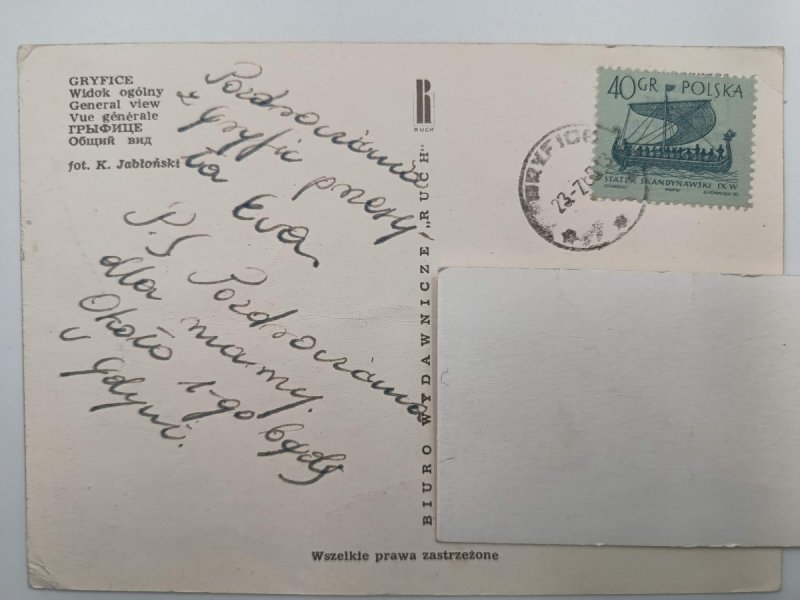 GRYFICE
Widok ogólny
General view
Vue générale
ГРЫФИЦЕ
Общий вид
fot. K. Jabłoński
Pozdrowienia
z Gryfic przesy
ła Ewa.
P.S Pozdrowienia
dla mamy.
Około 1-go będę
w Gdyni.
RUCH
BIURO WYDAWNICZE „RUCH"
40GR POLSKA
STATEK SKANDYNAWSKI IX W
GRYFIC
Wszelkie prawa zastrzeżone